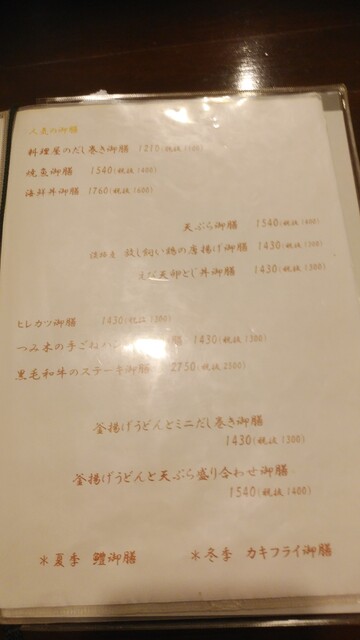 人気の御膳
料理屋のだし巻き御膳 1210(税抜 1100)
焼魚御膳 1540(税抜 1400)
海鮮丼御膳 1760(税抜 1600)
天ぷら御膳 1540(税抜 1400)
淡路産 放し飼い鶏の唐揚げ御膳 1430(税抜 1300)
えび天卵とじ丼御膳 1430(税抜 1300)
ヒレカツ御膳 1430(税抜 1300)
つみ木の手ごね 御膳 1430(税抜 1300)
黒毛和牛のステーキ御膳 2750(税抜 2500)
釜揚げうどんとミニだし巻き御膳
1430(税抜 1300)
釜揚げうどんと天ぷら盛り合わせ御膳
1540(税抜 1400)
*夏季 鱧御膳 *冬季 カキフライ御膳